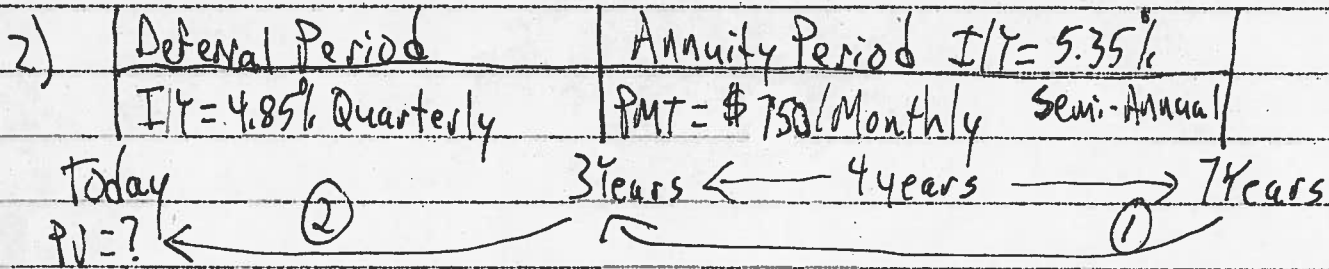 2) Deferral Period Annuity Period I/Y = 5.35%
I/Y = 4.85% Quarterly PMT = $750/Monthly Semi-Annual
Today 3 Years ← 4 years → 7 Years
PV = ? ② ①